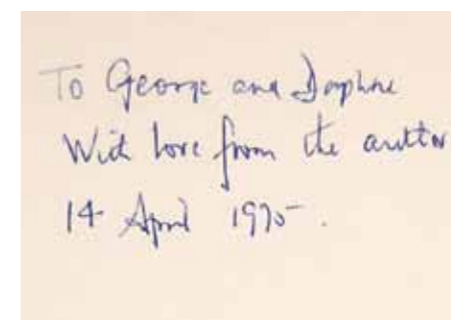 To George and Daphne
With love from the author
14 April 1975.